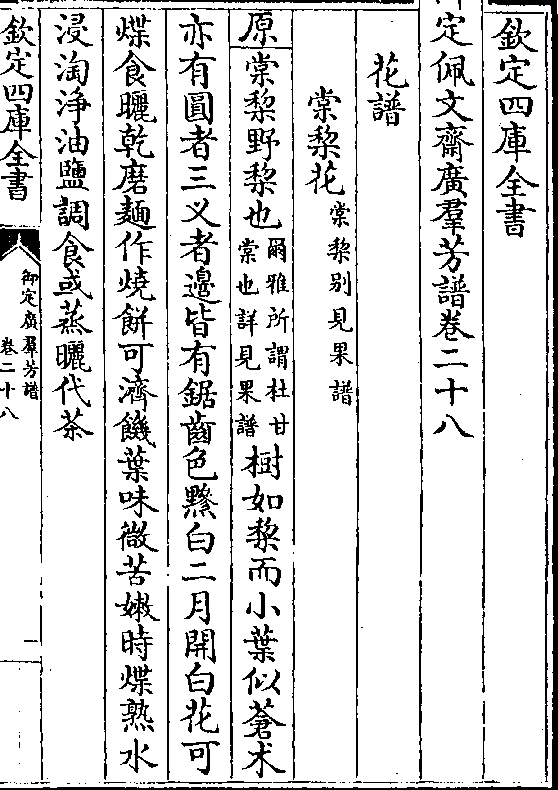 欽定四庫全書
定佩文齋廣羣芳譜卷二十八
花譜
棠棃花棠棃别見果譜
原棠棃野棃也爾雅所謂杜甘棠也詳見果譜樹如棃而小葉似蒼术
亦有圓者三义者邉皆有鋸齒色黲白二月開白花可
煠食曬乾磨麵作燒餅可濟饑葉味微苦嫩時煠熟水
浸淘淨油鹽調食或蒸曬代茶
欽定四庫全書
御定廣羣芳譜
卷二十八
一